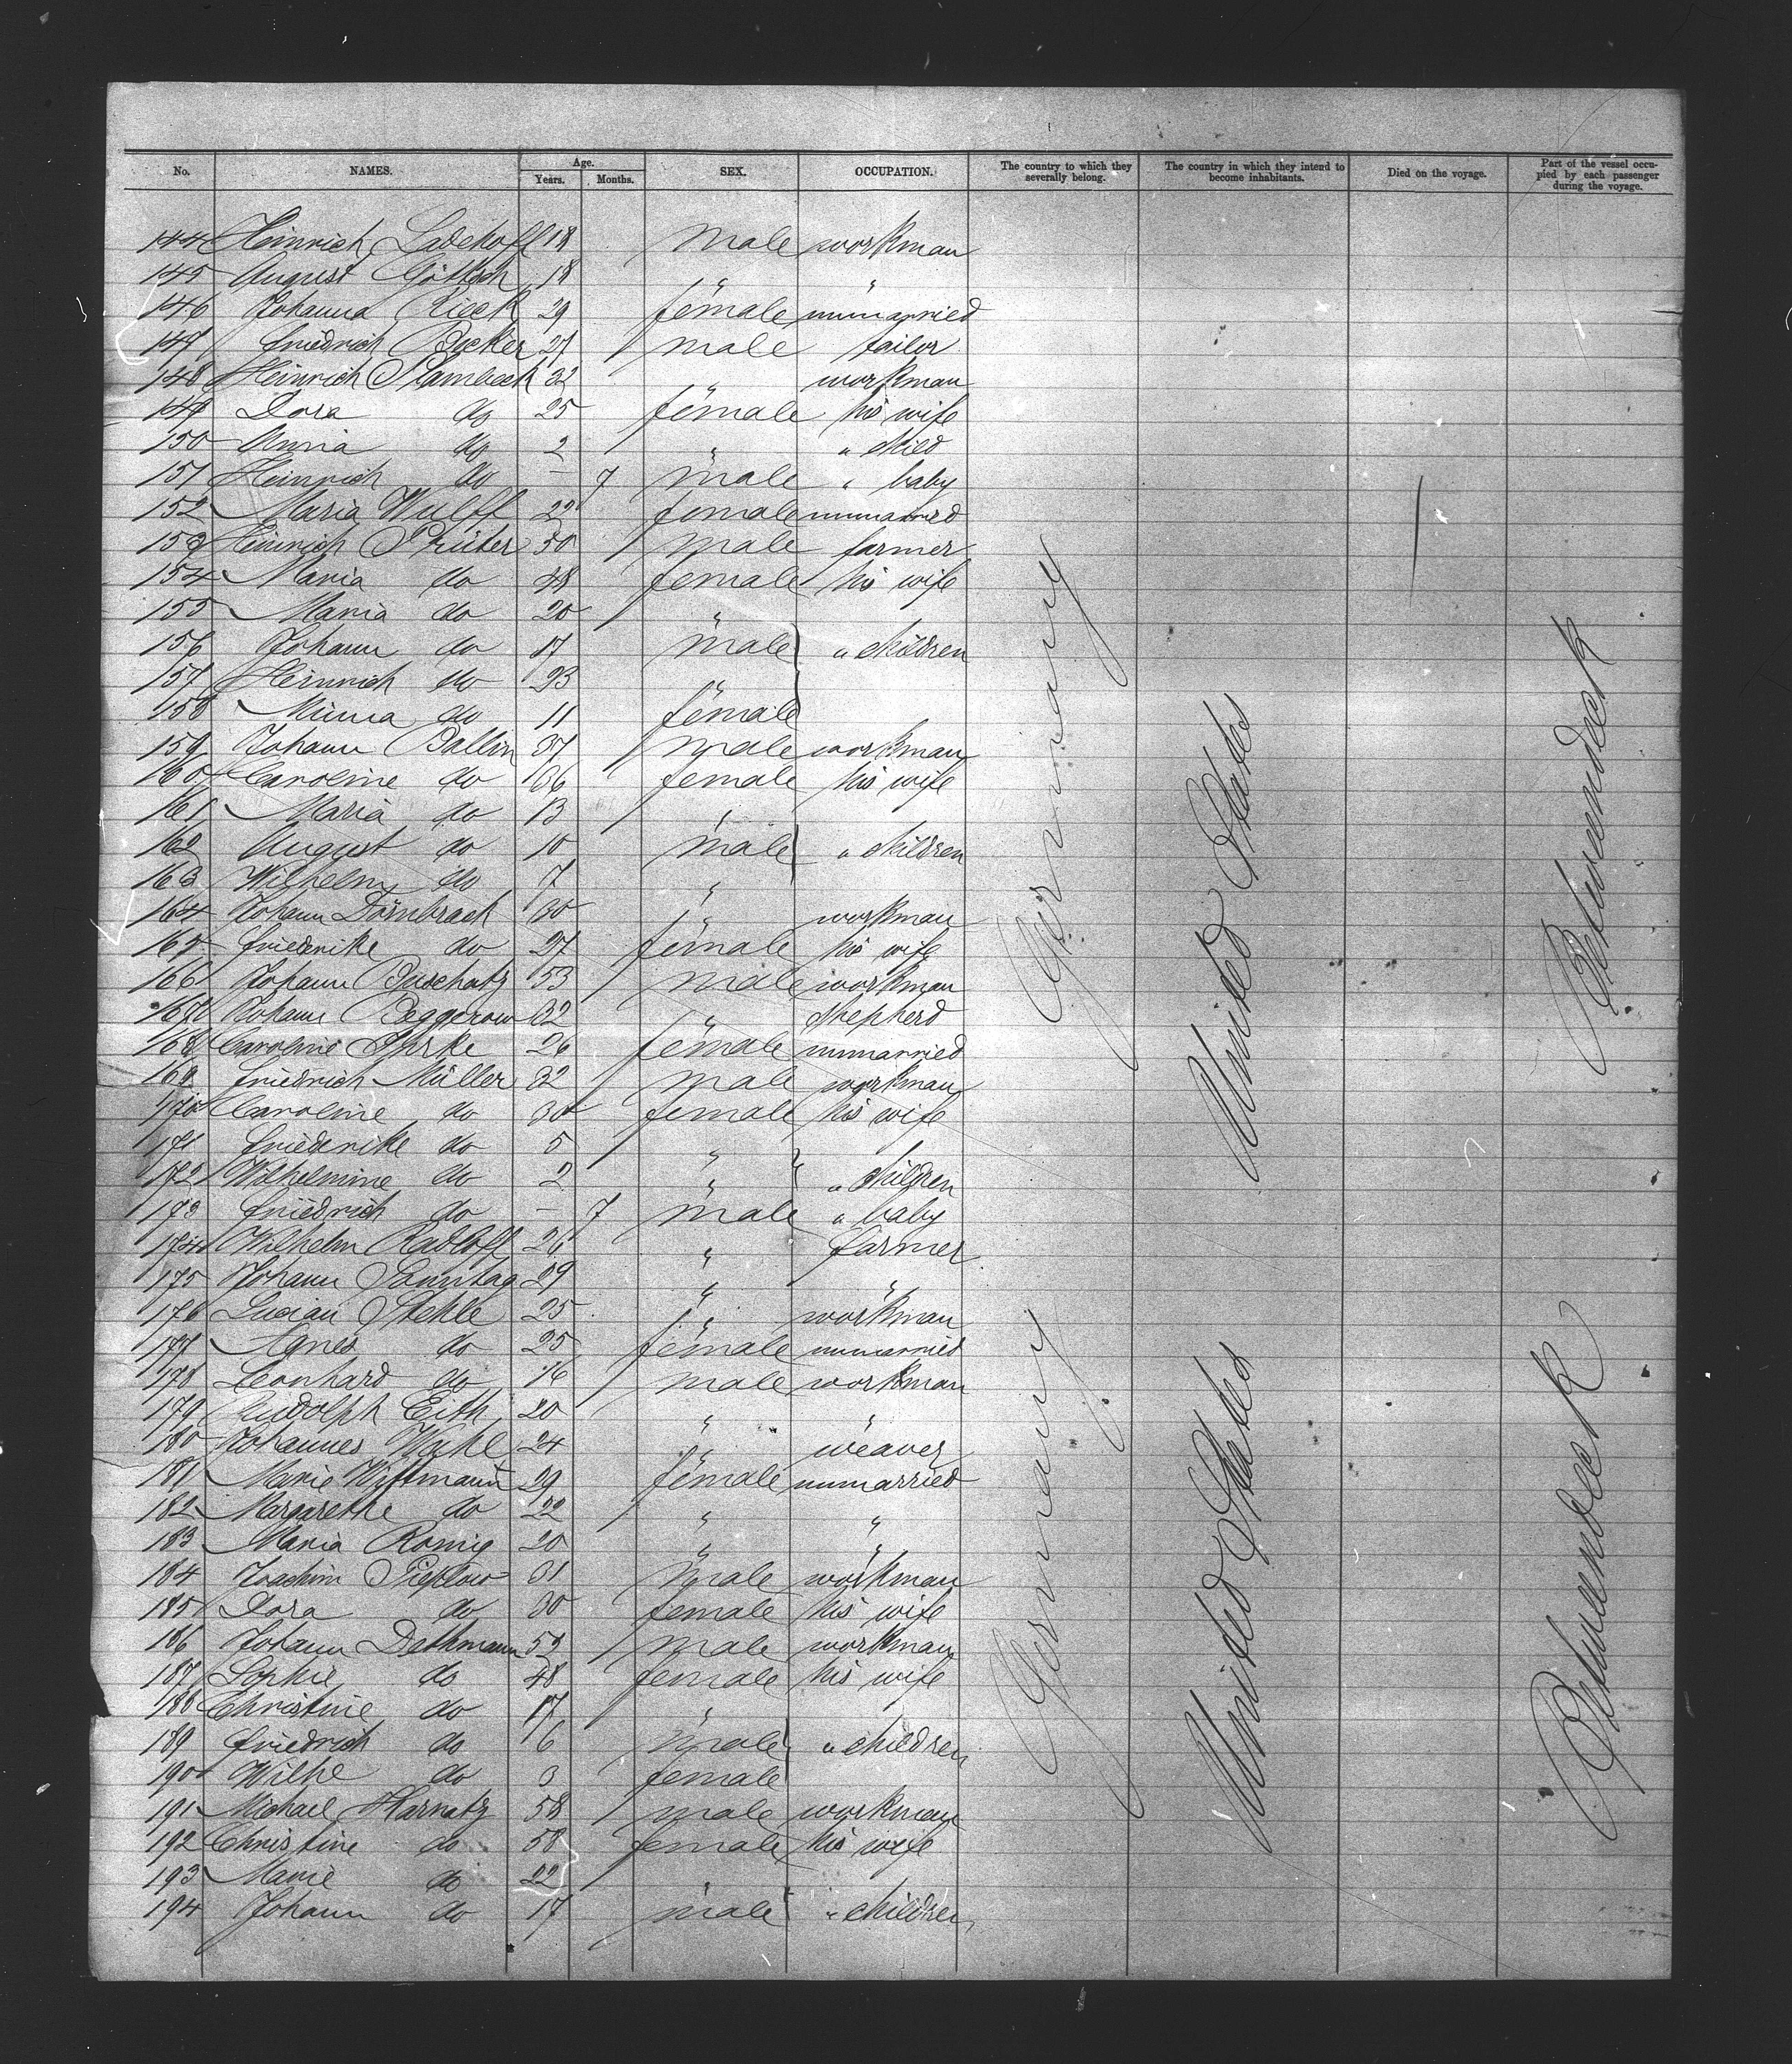 No. NAMES. Age. Years. Months. SEX. OCCUPATION. The country to which they severally belong. The country in which they intend to become inhabitants. Died on the voyage. Part of the vessel occupied by each passenger during the voyage.
144 Heinrich Ladehoff 18 male workman
145 August Göttsch 18 " "
146 Johanna Rieck 29 female unmarried
147 Friedrich Becker 27 male tailor
148 Heinrich Plambeck 32 " workman
149 Dora do 25 female his wife
150 Anna do 2 " " child
151 Heinrich do - 7 male " baby
152 Maria Wulff 22 female unmarried
153 Heinrich Prüter 50 male farmer
154 Maria do 48 female his wife
155 Maria do 20 "
156 Johann do 17 male " children
157 Heinrich do 23 "
158 Minna do 11 female
159 Johann Ballin 37 male workman
160 Caroline do 36 female his wife
161 Maria do 13 "
162 August do 10 male " children
163 Wilhelm do 7 "
164 Johann Dörnbrack 30 " workman
165 Friederike do 27 female his wife
166 Johann Buschatz 53 male workman
167 Johann Beggerow 32 " shepherd
168 Caroline 26 female unmarried
169 Friedrich Müller 32 male workman
170 Caroline do 30 female his wife
171 Friederike do 5 "
172 Wilhelmine do 2 " " children
173 Friedrich do - 7 male " baby
174 Wilhelm Radloff 26 " farmer
175 Johann Sonntag 29 " "
176 Lucian Stehle 25 " workman
177 Agnes do 25 female unmarried
178 Leonhard do 16 male workman
179 Rudolph Eith 20 " "
180 Johannes Wahl 24 " weaver
181 Marie Wittmann 29 female unmarried
182 Margarethe do 22 " "
183 Maria Romig 20 " "
184 Joachim Pieplow 31 male workman
185 Dora do 30 female his wife
186 Johann Dethmann 52 male workman
187 Sophie do 48 female his wife
188 Christine do 17 "
189 Friedrich do 6 male " children
190 Wilhe do 3 female
191 Michael Harnatz 58 male workman
192 Christine do 58 female his wife
193 Marie do 22
194 Johann do 17 male " children
Germany
United States
Betweendeck
Germany
United States
Betweendeck